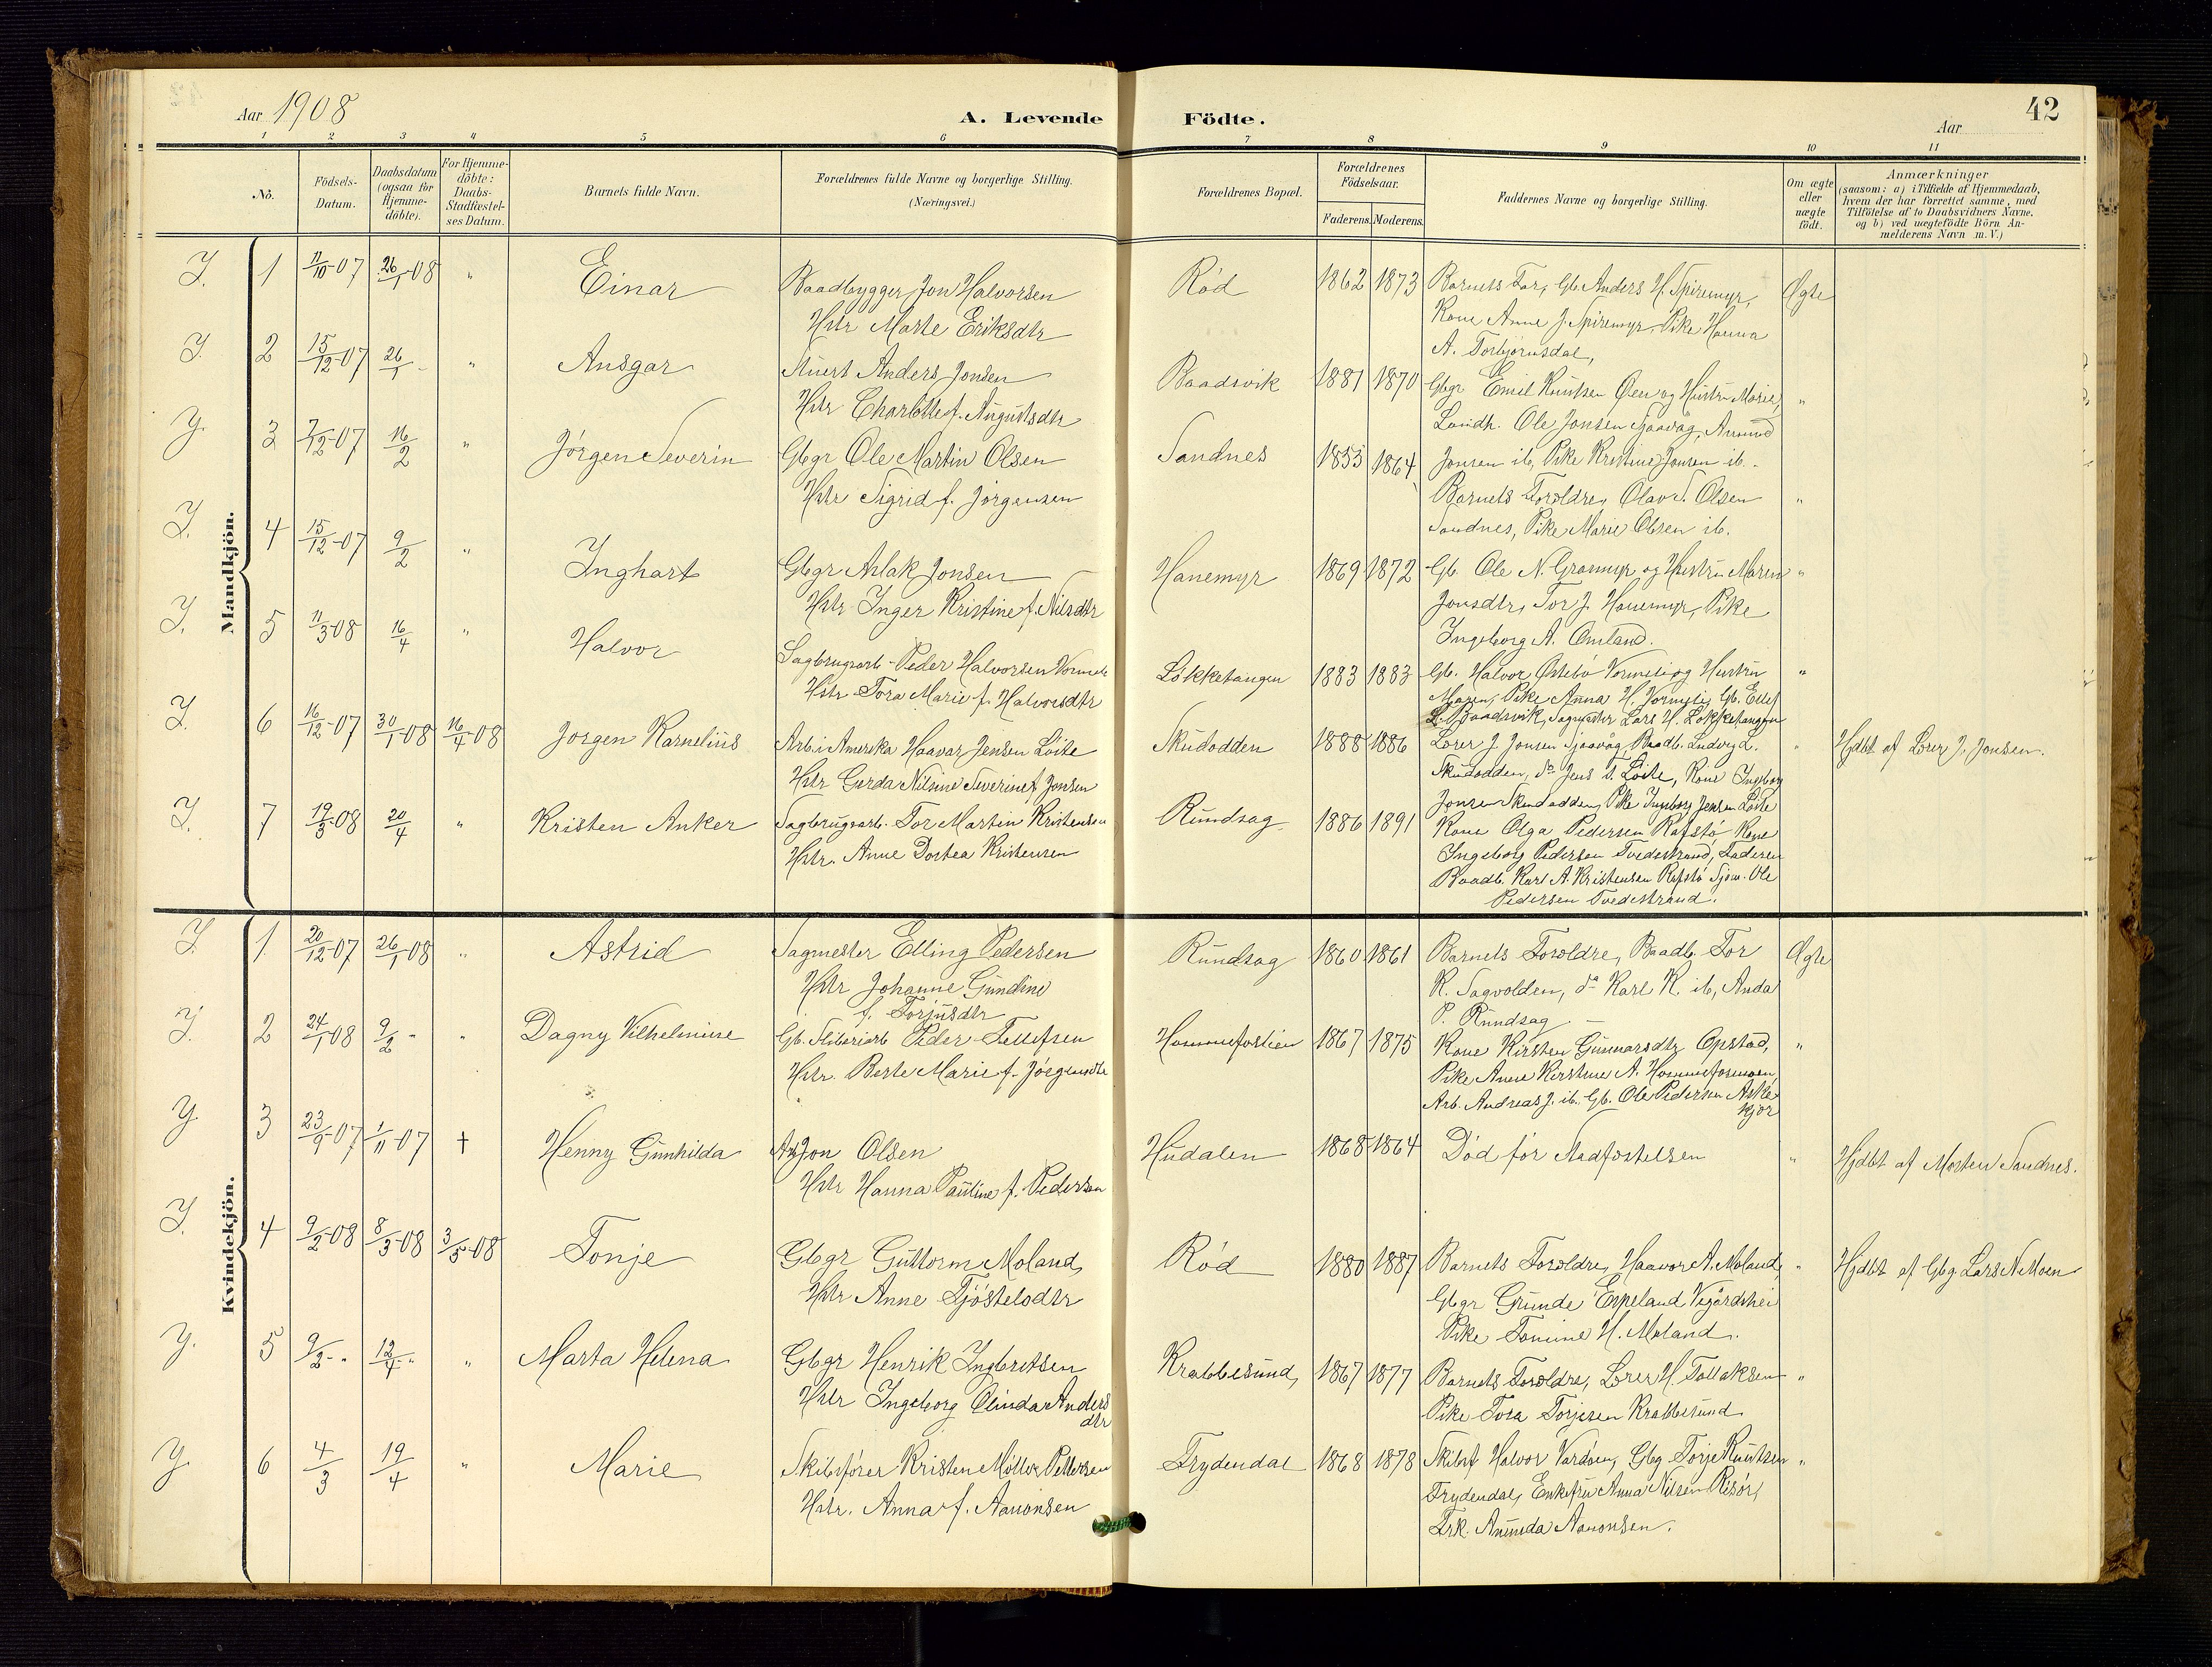 Aar 1908
A. Levende Födte.
Aar
42
1 2 3 4 5 6 7 8 9 10 11
No.
Födsels-Datum.
Daabsdatum (ogsaa for Hjemme-döbte).
For Hjemme-döbte: Daabs-Stadfæstel-ses Datum.
Barnets fulde Navn.
Forældrenes fulde Navne og borgerlige Stilling.
(Næringsvei.)
Forældrenes Bopæl.
Forældrenes Födselsaar.
Faderens. Moderens.
Faddernes Navne og borgerlige Stilling.
Om ægte eller uægte födt.
Anmærkninger
(saasom: a) i Tilfælde af Hjemmedaab,
hvem der har forrettet samme, med
Tilföielse af to Daabsvidners Navne.
og b) ved uægtefödte Börn An-
melderens Navn m. V.)
Mandkjön.
J. 1 11/10-07 26/1-08 " Einar
Baadbygger Jon Halvorsen
Hstr Marte Eriksdtr
Röd 1862 1873
Barnets Far, Gb. Anders H. Spiremyr,
Kone Anne J. Spiremyr, Pike Hanna
A. Torbjørnsdal,
Ægte
J. 2 15/12-07 26/1 - " Ansgar
Anders Jonsen
Hstr Charlotte f. Augustsdtr
Baadsvik 1881 1870
Gbgr Emil Knutsen Øen og Hustru Marie,
Landh. Ole Jonsen Sjaavåg, Anund
Jonsen ib, Pike Kristine Jonsen ib.
"
J. 3 7/12-07 16/2 " Jørgen Severin
Gbgr Ole Martin Olsen
Hstr Sigrid f. Jørgensen
Sandnes 1855 1864
Barnets Foreldre, Olav S. Olsen
Sandnes, Pike Marie Olsen ib.
"
J. 4 15/12-07 9/2 " Inghart
Gbgr Aslak Jonsen
Hstr Inger Kristine f. Nilsdtr
Hanemyr 1869 1872
Gb. Ole N. Granmyr og Hustru Maren
Jonsdtr, Tor J. Hanemyr, Pike
Ingeborg A. Omland.
"
J. 5 11/3 08 16/4 " Halvor
Sagbrugsarb. Peder Halvorsen
Hstr Tora Marie f. Halvorsdtr
Løkketangen 1883 1883
Gb. Halvor Østebø Vormeli og Hustru
Maren, Pike Anna H. Vormeli, Gb. Ellef
L. Baadsvik, Sagmester Lars H. Løkketangen
"
J. 6 16/12-07 30/1-08 16/4-08 Jørgen Kornelius
Arb. i Amerika Haavar Jensen Løite
Hstr Gerda Nilsine Severine f. Jonsen
Skudodden 1888 1886
Lærer J. Jonsen Sjaavåg, Baadb. Ludvig L.
Skudodden, do Jens T. Løite, Kone Ingeborg
Jonsen Skudodden, Pike Ingeborg Jensen Løite
"
Hjdbt af Lærer J. Jonsen.
J. 7 19/3-08 20/4 " Kristen Anker
Sagbrugsarb. Tor Martin Kristensen
Hstr. Anne Dortea Kristensen
Rundsag 1886 1891
Kone Olga Pedersen Rafstø Kone
Ingeborg Pedersen Tvedestrand, Faderen
Baadb. Karl A. Kristensen Rafstø Sjøm. Ole
Pedersen Tvedestrand.
Kvindekjön.
J. 1 20/12-07 26/1-08 " Astrid
Sagmester Elling Pedersen
Hstr Johanne Gundine
f. Torjusdtr
Rundsag 1860 1861
Barnets Foreldre, Baadb. Tor
K. Sagvolden, do Karl K. ib, Anda
P. Rundsag.
Ægte
J. 2 24/1-08 9/2 - " Dagny Vilhelmine
Gb. Peder Tellefsen
Hstr. Berte Marie f. Jørgensdtr
Hommefoslien 1867 1875
Kone Kirsten Gunnarsdtr Opstad,
Pike Anne Kirstine A.
Arb. Andreas J. ib. Gb. Ole Pedersen Aske
kjør
"
J. 3 23/9-07 1/11 07 † Henny Gunhilda
Arb Jon Olsen
Hstr Hanna Pauline f. Pedersen
Hudalen 1868 1864
Død før Stadfestelsen
"
Hjdbt af Morten Sandnes.
J. 4 9/2-08 8/3-08 3/5-08 Tonje
Gbgr Guttorm Moland,
Hstr Anne Tjøstelsdtr
Röd 1880 1887
Barnets Foreldre, Haavor A. Moland,
Gbgr Grunde Espeland Vegårdshei
Pike Tomine H. Moland.
"
Hjdbt af Gbg Lars N. Moen
J. 5 9/2- " 12/4- " " Marta Helena
Gbgr Henrik Ingbretsen
Hstr Ingeborg Olinda Anders
dtr
Krabbesund, 1867 1877
Barnets Foreldre, Lærer H. Tollaksen
Pike Tora Torjesen Krabbesund
"
J. 6 4/3 19/4 " Marie
Skibsfører Kristen Møller Pettersen
Hstr. Anna f. Aanonsen
Frydendal 1868 1878
Skibsf Halvor Vardøen, Gbg Torje Knutsen
Frydendal, Enkefru Anna Nilsen Risør,
Frk. Amunda Aanonsen.
"